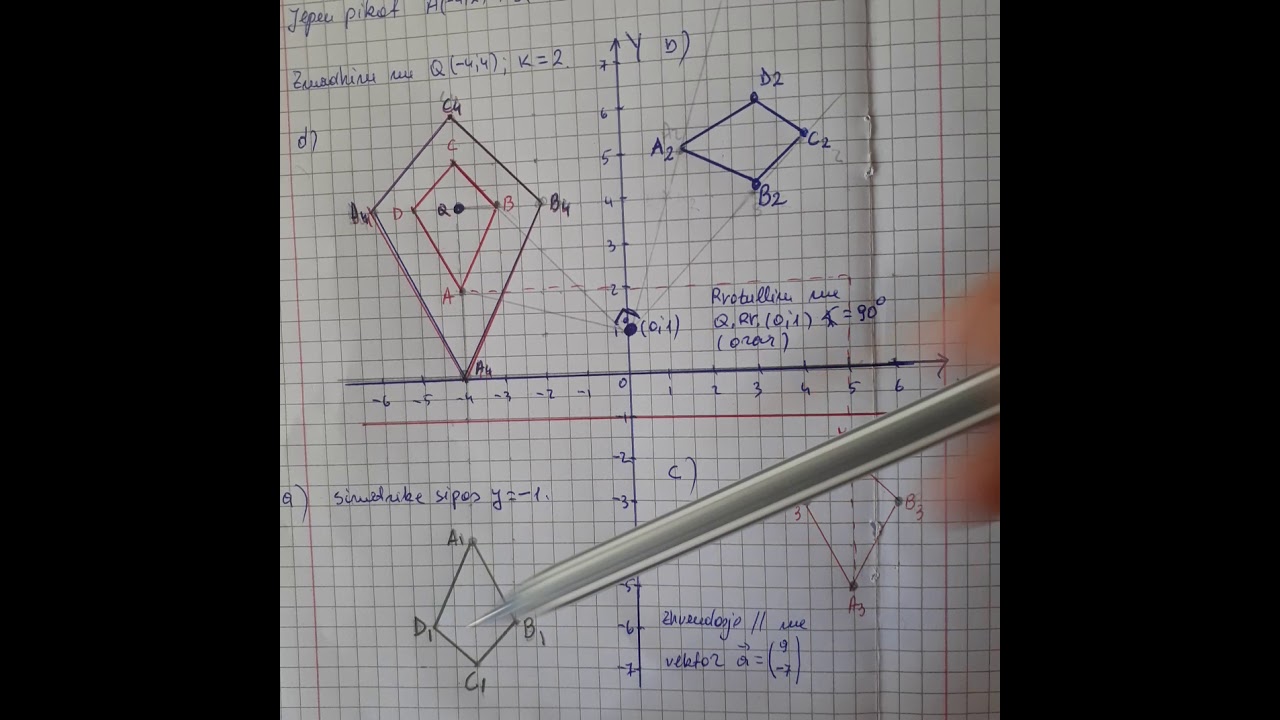 Jepen pikat
Zmadhim me Q(-4,4); K=2.
Y b)
7
d)
C4
D2
6
C
A2
5
C2
B2
D Q B B4
4
3
A
2
Rrotullim me
(0,1)
Q.Rr.(0,1) ∢=90°
(orar)
A4
-6 -5 -4 -3 -2 -1 0 1 2 3 4 5 6
-1
-2
c)
a) Simetrike sipas y=-1.
-3
3
B3
A1
-5
A3
D1 B1
-6
Zhvendosje // me
vektor a⃗=(9
-7)
-7
C1